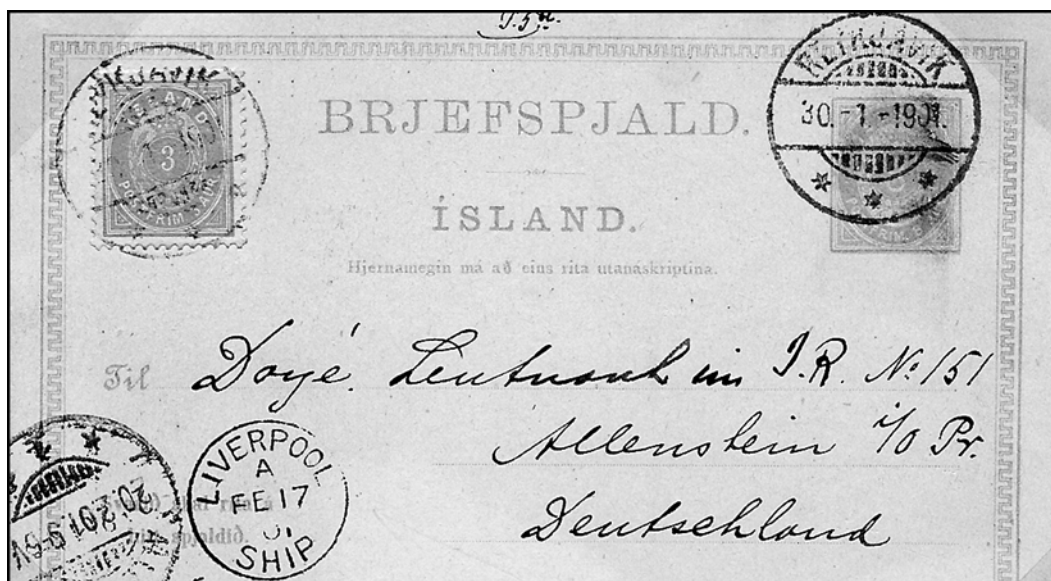 REYKJAVIK
30.-1.-1901.
ÍSLAND
3
BRJEFSPJALD.
ÍSLAND.
Hjernamegin má að eins rita utanáskriptina.
Til Doyé. Leutnant im I.R. No. 151
Allenstein i/O Pr.
Deutschland
LIVERPOOL
A
FE 17
01
SHIP
20.2.01.
spjaldið.